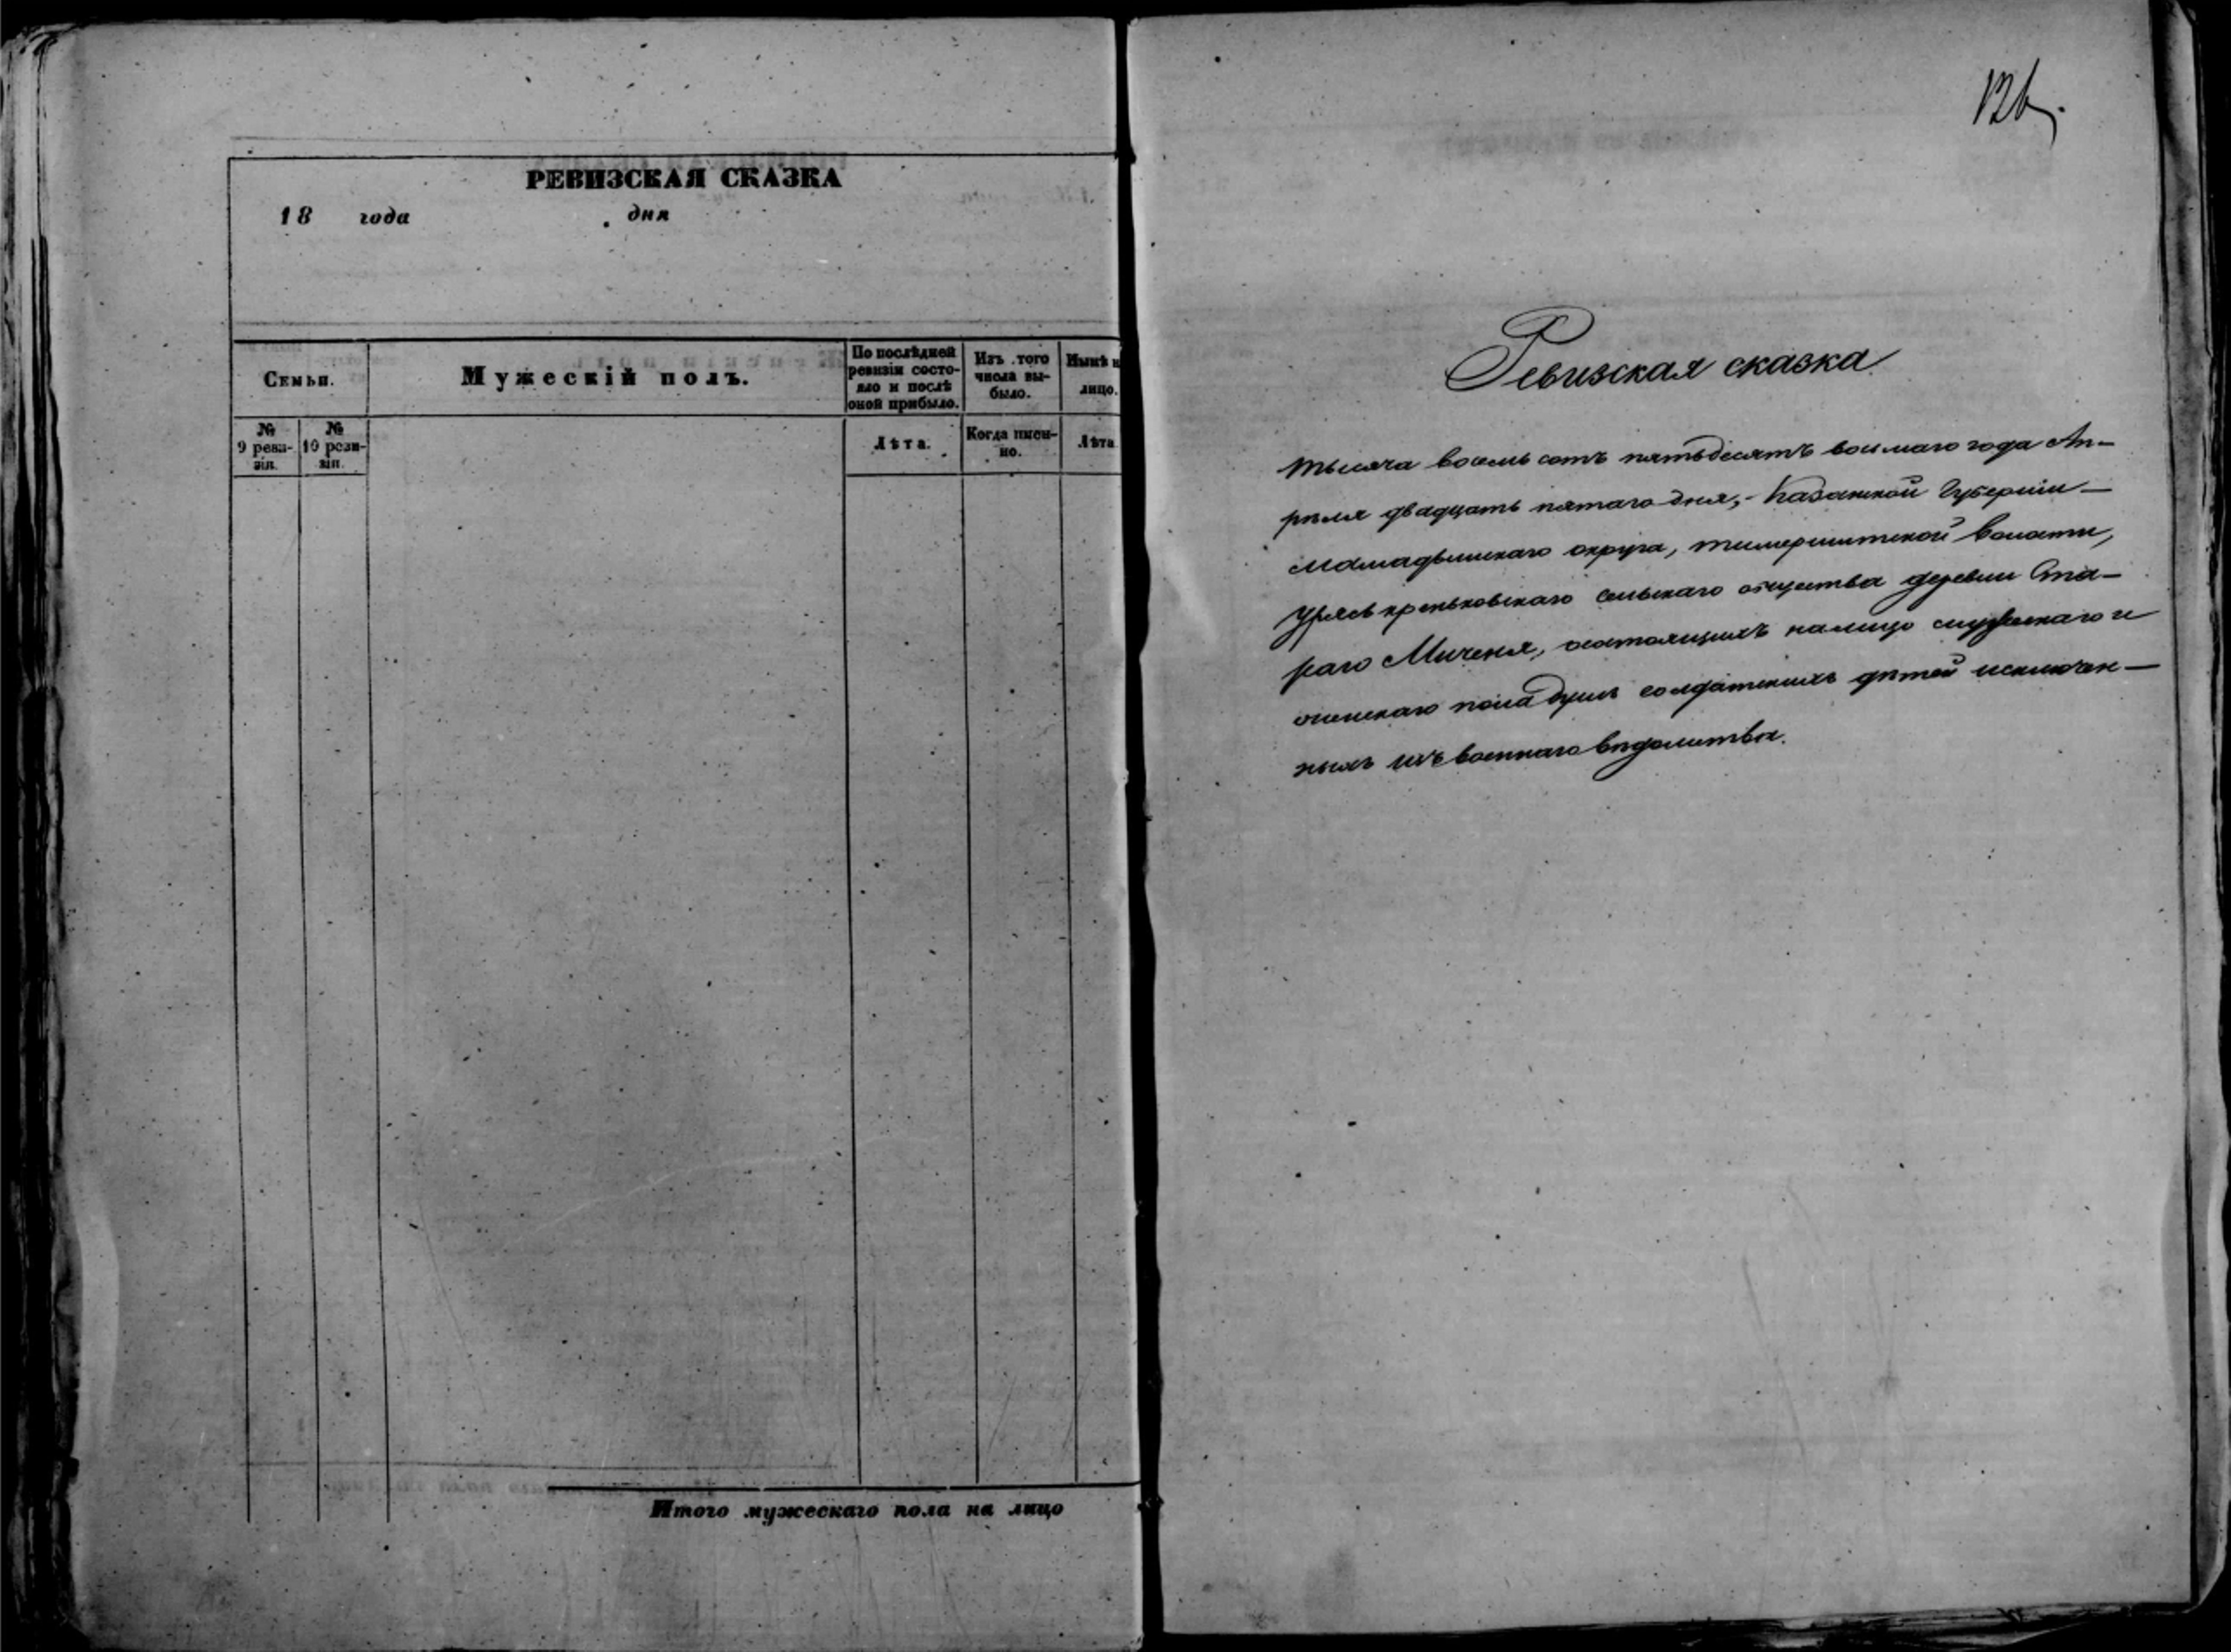 РЕВИЗСКАЯ СКАЗКА
18 года дня
Семьи.
Мужескій полъ.
По послѣдней ревизіи состояло и послѣ оной прибыло.
Изъ того числа выбыло.
Нынѣ н лицо.
№ 9 ревизіи.
№ 10 ревизіи.
Лѣта.
Когда именно.
Лѣта
Итого мужескаго пола на лицо
126
Ревизская сказка
тысяча восемь сотъ пятьдесятъ восьмаго года Ап-
рѣля двадцать пятаго дня, Казанской Губерніи
Мамадышскаго округа, волости,
сельскаго общества деревни Ста-
раго Миченя, состоящихъ налицо мужескаго и
женскаго пола душъ солдатскихъ дѣтей исключен-
ныхъ изъ военнаго вѣдомства.